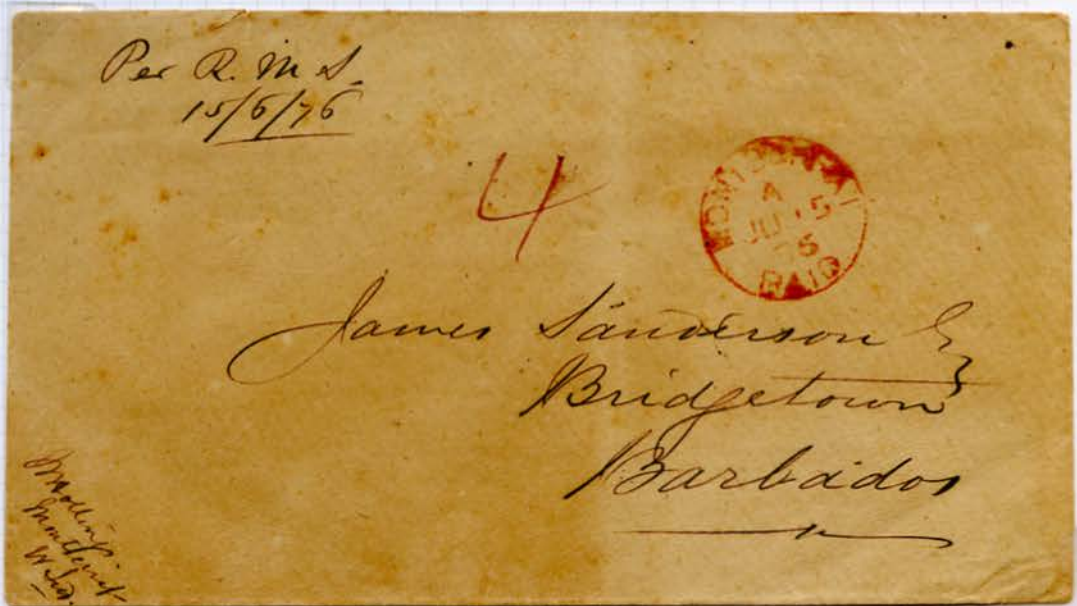 Per R. M S.
15/6/76
4
MONTSERRAT
A
JU 15
76
PAID
James Sanderson Esq
Bridgetown
Barbados
Montserrat
W. Ind.